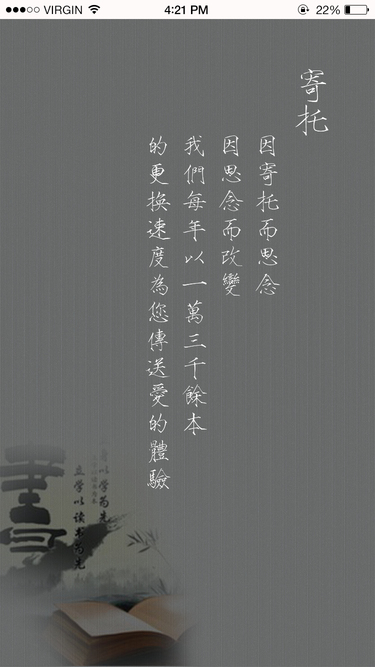 VIRGIN 4:21 PM 22%
寄托
因寄托而思念
因思念而改變
我們每年以一萬三千餘本
的更换速度為您傳送愛的體驗
立学以读书为先
書